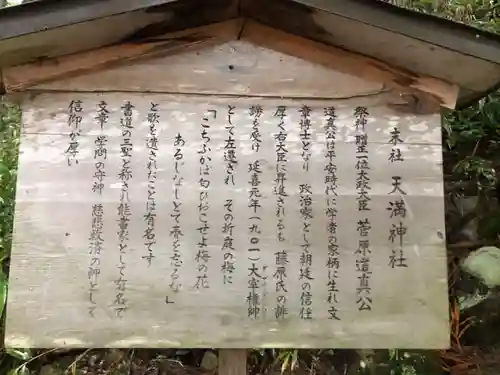 末社 天満神社
祭神 贈正一位太政大臣 菅原道真公
道真公は平安時代に学者の家柄に生れ 文
章博士となり 政治家として朝廷の信任
厚く右大臣に昇進されるも 藤原氏の誹
謗を受け 延喜元年(九〇一)大宰権帥
として左遷され その折庭の梅に
「こちふかば匂ひおこせよ梅の花
あるじなしとて春を忘るな」
と歌を遺されたことは有名です
書道の三聖と称され能書家として有名で
文章 学問の守神 慈眼救済の神として
信仰が厚い